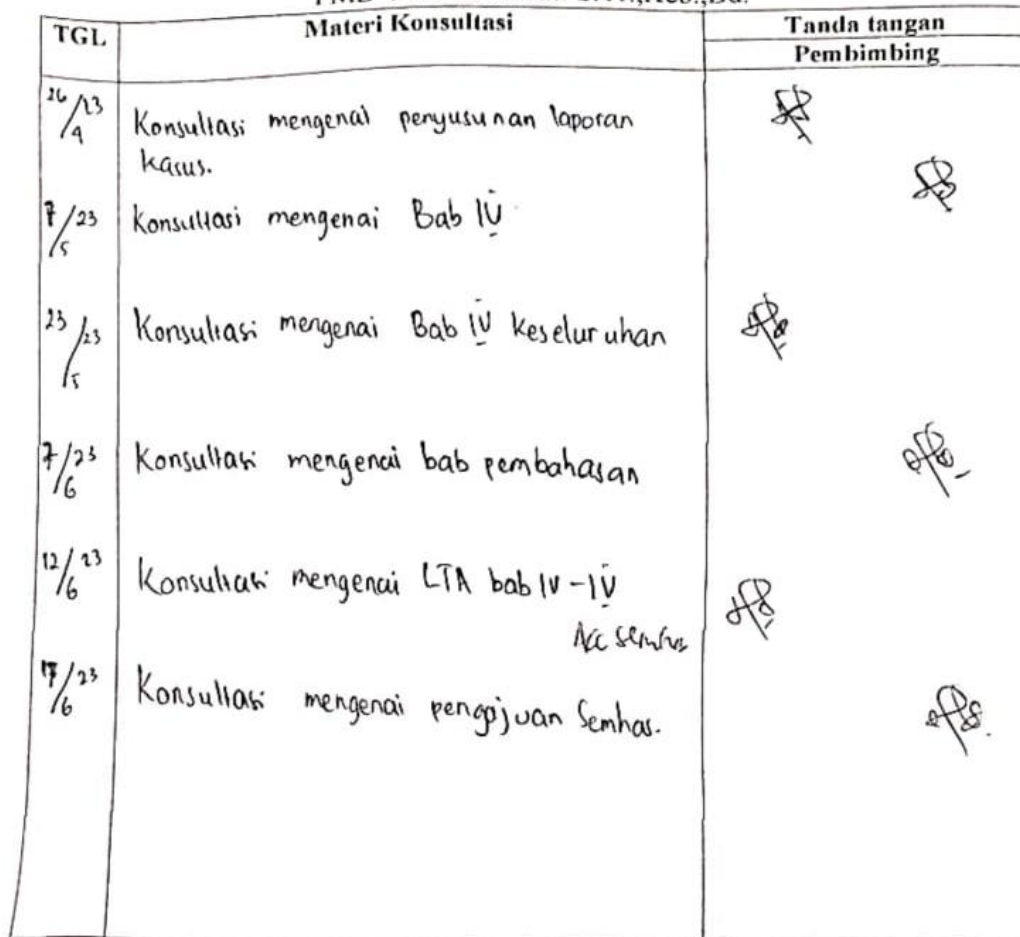 TGL Materi Konsultasi Tanda tangan
Pembimbing
26/4 23 Konsultasi mengenai penyusunan laporan
kasus.
7/5 23 Konsultasi mengenai Bab IV
23/5 23 Konsultasi mengenai Bab IV keseluruhan
7/6 23 Konsultasi mengenai bab pembahasan
12/6 23 Konsultasi mengenai LTA bab IV - IV
Acc semhas
17/6 23 Konsultasi mengenai pengajuan Semhas.